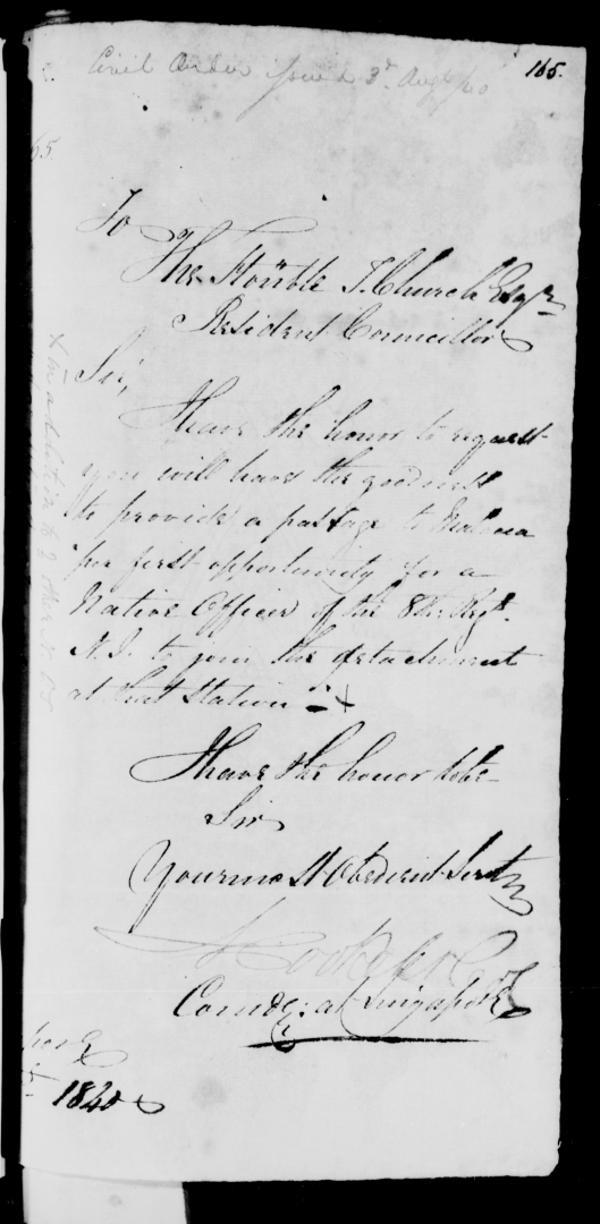 Civil Order issued 3d. Augt /40
165.
65.
To
The Honble T. Church Esqr
Resident Councillor
Sir,
I have the honor to request
you will have the goodness
to provide a passage to Malacca
per first opportunity for a
Native Officer of the 8th. Regt.
N. I. to join the detachment
at that Station - x
x in addition to 2 other N. O
I have the honor to be
Sir
Your most Obedient Servt
Comdg: at Singapore
pore
1840